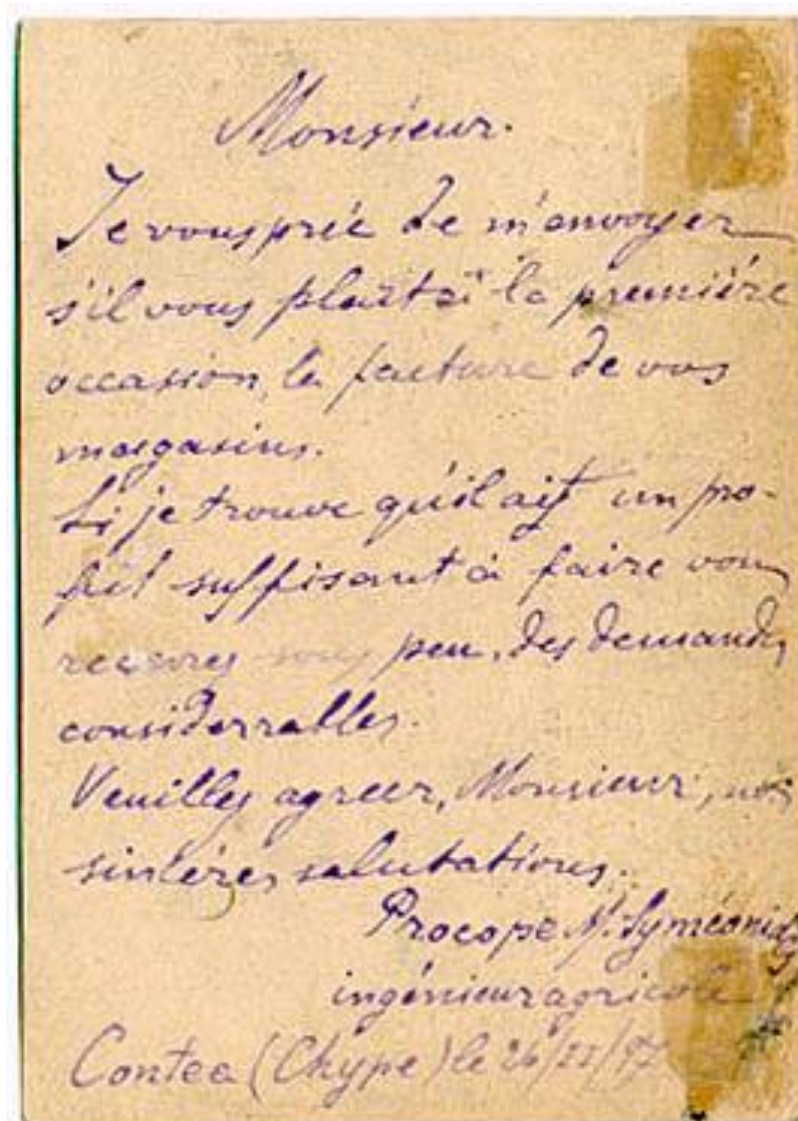 Monsieur.
Je vous prie de m'envoyer
s'il vous plaît à la première
occasion, la facture de vos
magasins.
Si je trouve qu'il ait un pro-
fit suffisant à faire vous
recevrez sous peu, des demandes
considerrables.
Veuillez agreer, Monsieur, nos
sincères salutations.
Procope N. Syméonides
ingénieur agricole
Contea (Chype) le 26/ /97